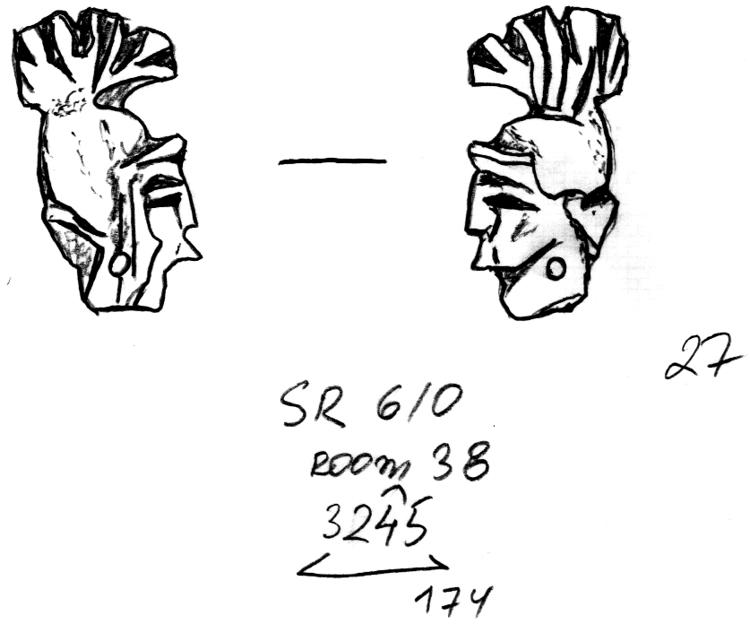 27
SR 6/0
ROOM 38
3245
174